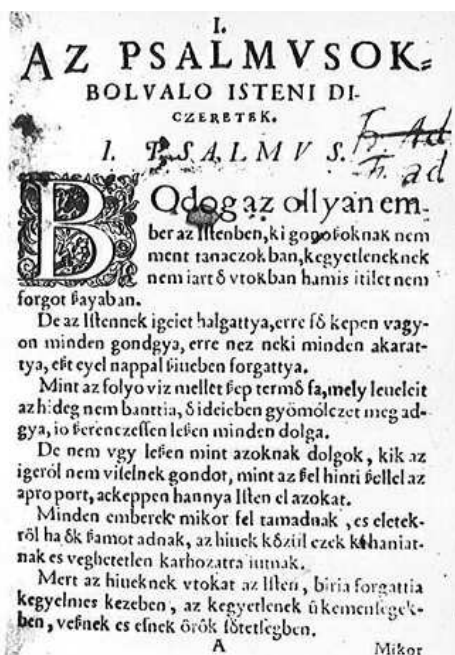 I.
AZ PSALMVSOK=
BOLVALO ISTENI DI-
CZERETEK.
I. PSALMVS.
Ad
ad
BOdog az ollyan em-
ber az Istenben, ki gonoßoknak nem
ment tanaczokban, kegyetleneknek
nem iart ő vtokban hamis itilet nem
forgot ßayaban.
De az Istennek igeiet halgattya, erre fő kepen vagy-
on minden gondgya, erre nez neki minden akarat-
tya, est eyel nappal ßiueben forgattya.
Mint az folyo viz mellet ßep termő fa, mely leueleit
az hideg nem banttia, ő ideieben gyömölczet meg ad-
gya, io ßerenczessen leßen minden dolga.
De nem vgy leßen mint azoknak dolgok, kik az
igeről nem viselnek gondot, mint az ßel hinti ßellel az
apro port, ackeppen hannya Isten el azokat.
Minden emberek mikor fel tamadnak, es eletek-
ről ha ők ßamot adnak, az hiuek közül ezek ki haniat-
nak es veghetetlen karhozatra iutnak.
Mert az hiueknek vtokat az Isten, biria forgattia
kegyelmes kezeben, az kegyetlenek ű kemensegek-
ben, vesnek es esnek örök sötetsegben.
A
Mikor